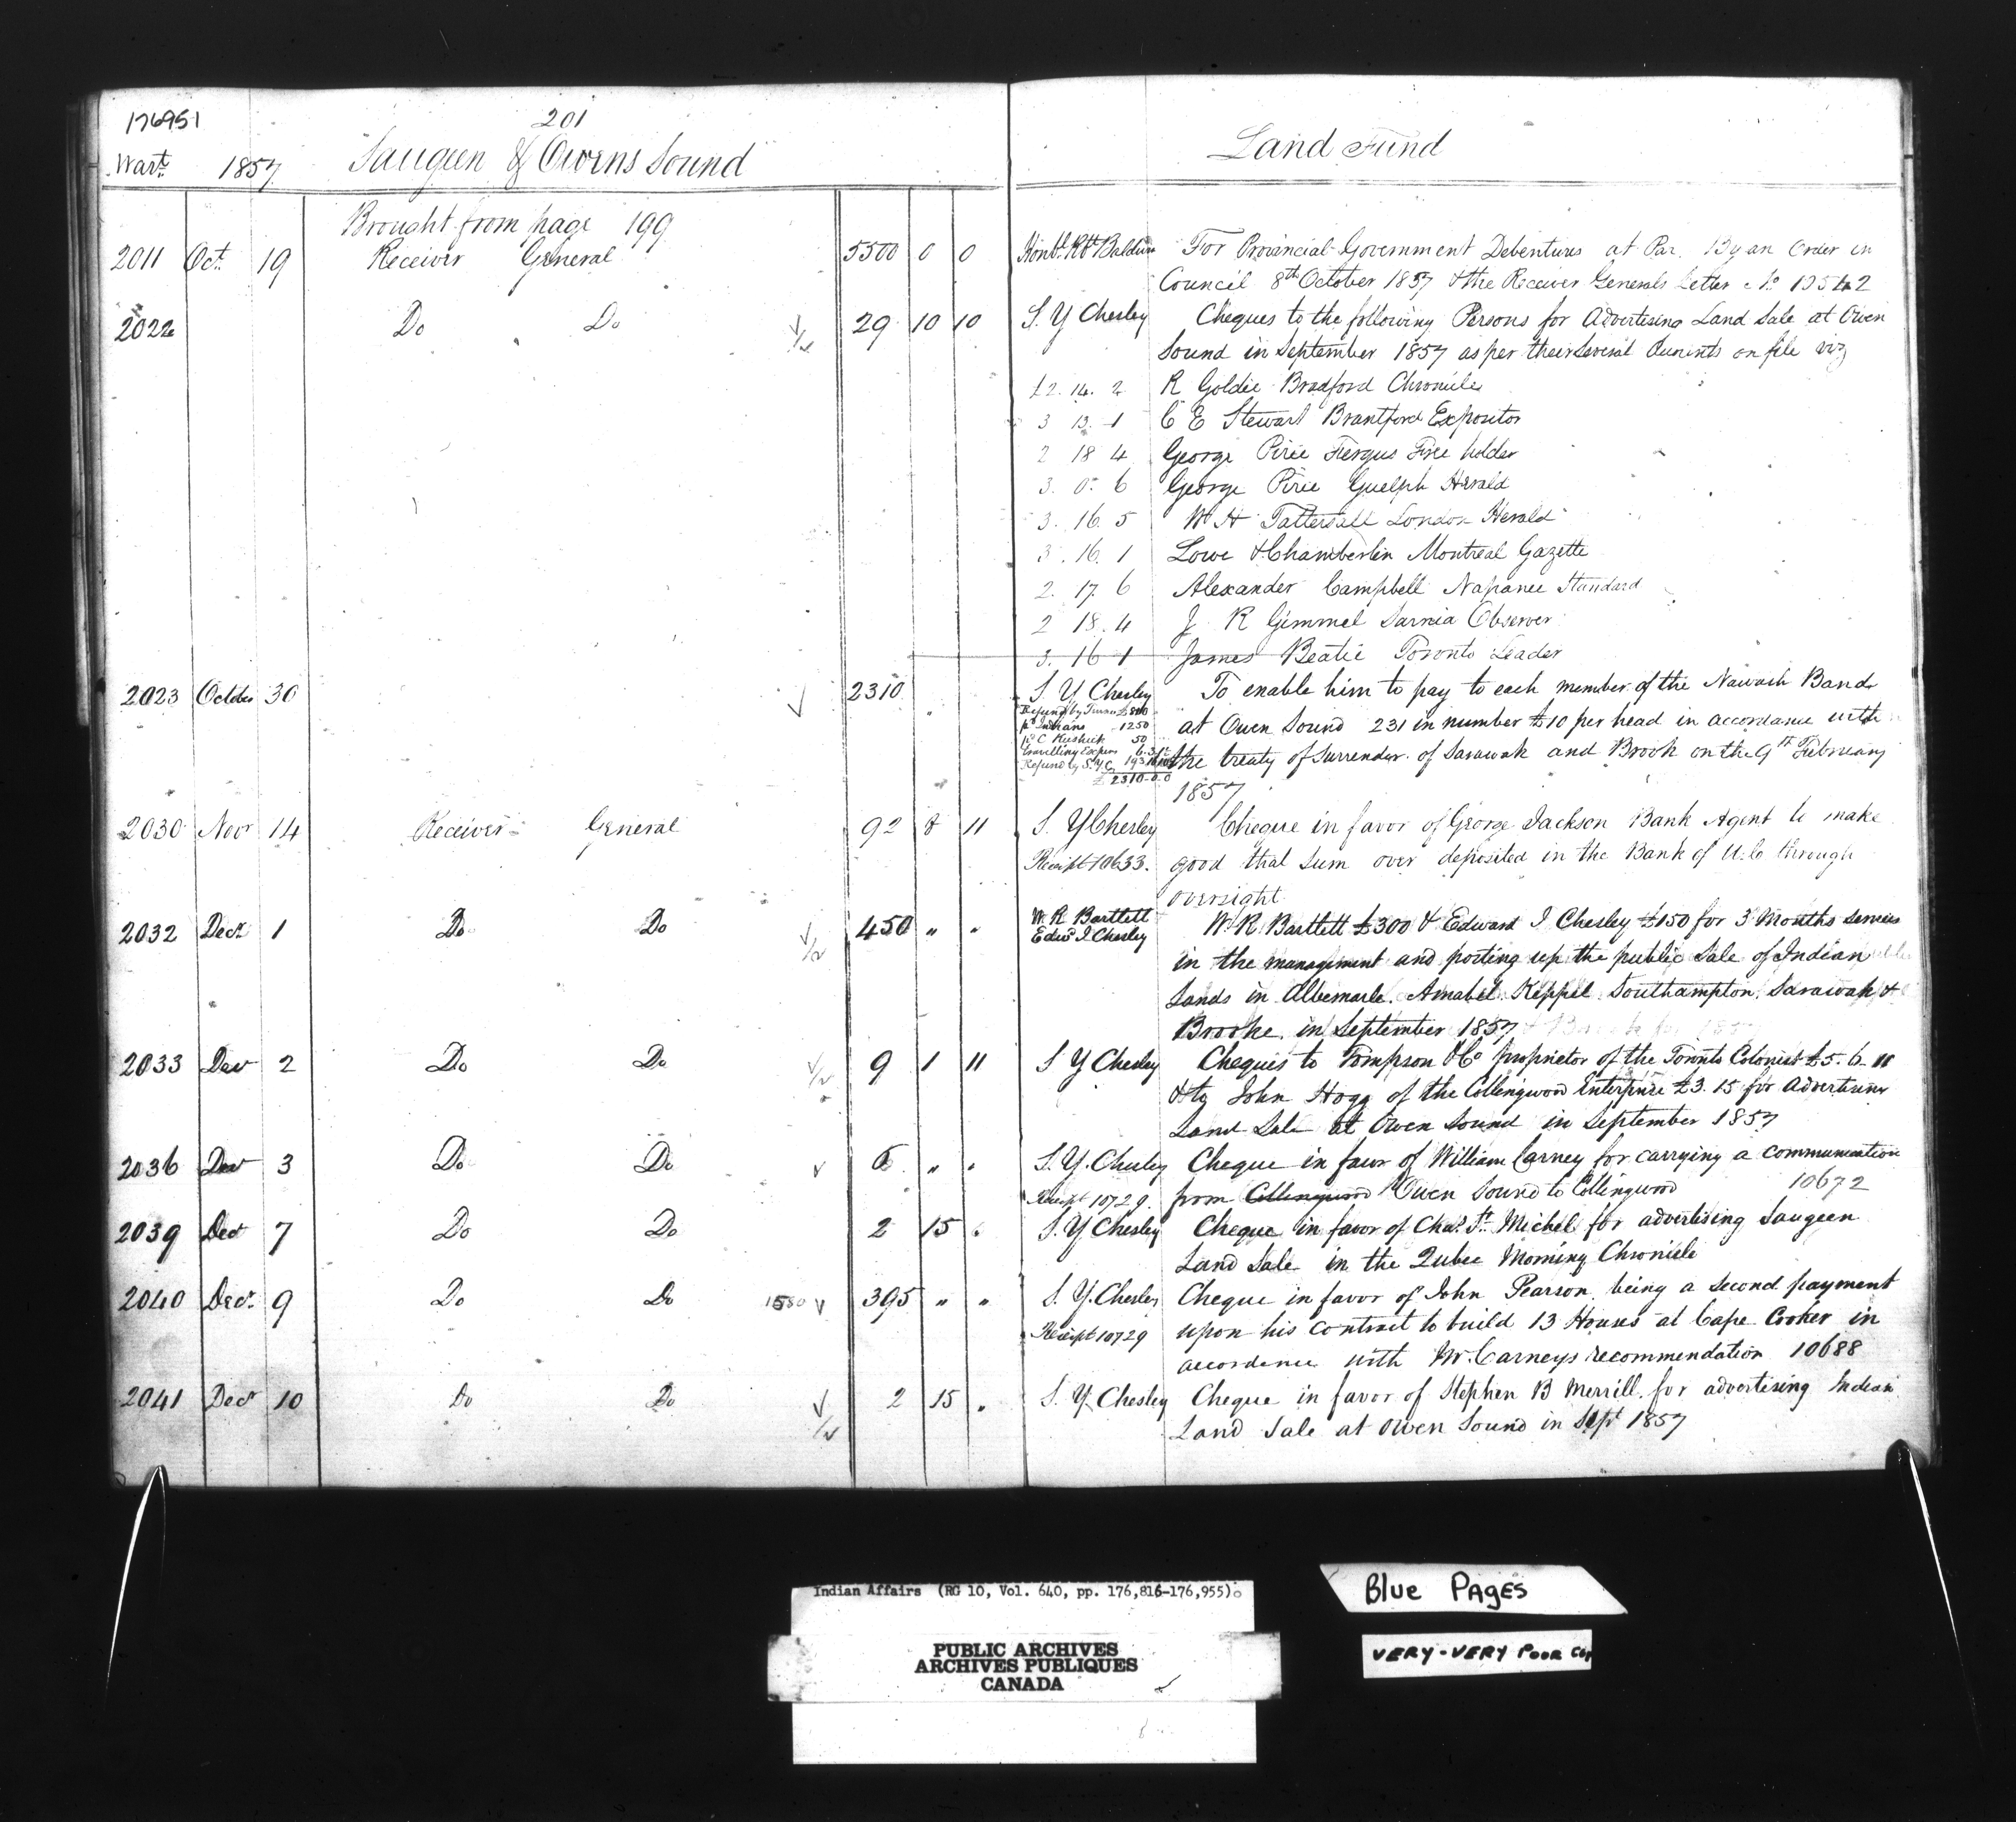 176951
201
Warts 1857 Saugeen & Owens Sound
Land Fund
Brought from page 199
2011 Oct. 19 Receiver General 5500 0 0 Honbl. Rt. Baldwin For Provincial Government Debentures at Par. By an Order in
Council 8th October 1857 & the Receiver Generals Letter No 10542
2022 Do Do 29 10 10 S. Y Chesley Cheques to the following Persons for Advertising Land Sale at Owen
Sound in September 1857 as per their several on file viz
£2. 14. 2 R Goldie Bradford Chronicles
3 13. 1 C E Stewart Brantford Expositor
2 18 4 George Pirie Fergus Free holder
3. 0. 6 George Pirie Guelph Herald
3. 16. 5 W H Tattersall London Herald
3. 16. 1 Lowe & Chamberlin Montreal Gazette
2. 17. 6 Alexander Campbell Napanee Standard
2 18. 4 J R Gimmel Sarnia Observer
3. 16 1 James Beatie Toronto Leader
2023 October 30 2310 S. Y Chesley To enable him to pay to each member of the Nawash Band
at Owen Sound 231 in number £10 per head in accordance with
the treaty of Surrender of Sarawak and Brook on the 9th February
1857
Indians 1250
50
Travelling Expens
Refund by S.Y.C.
£ 2310-0-0
2030 Novr 14 Receiver General 92 8 11 S. Y Chesley Cheque in favor of George Jackson Bank Agent to make
Receipt 10633. good that sum over deposited in the Bank of U.C through
oversight
2032 Decr. 1 Do Do 450 " " W. R Bartlett W. R Bartlett £300 & Edward I Chesley £150 for 3 Months services
Edwd I Chesley
in the management and posting up the public Sale of Indian
Lands in Albemarle. Amabel. Keppel Southampton. Sarawak &
Brooke. in September 1857
2033 Decr 2 Do Do 9 1 11 S Y Chesley Cheques to Tompson & Co proprietor of the Toronto Colonist £5. 6. 11
& to John Hogg of the Collingwood Enterprise £3. 15 for advertising
Land Sale at Owen Sound in September 1857
2036 Decr 3 Do Do 6 " " S. Y. Chesley Cheque in favor of William Carney for carrying a communication
Receipt 10729. from Collingwood Owen Sound to Collingwood 10672
2039 Decr 7 Do Do 2 15 " S. Y Chesley Cheque in favor of Chas. St. Michel for advertising Saugeen
Land Sale in the Qubec Morning Chronicle
2040 Decr. 9 Do Do 395 " " S. Y. Chesley Cheque in favor of John Pearson being a second payment
Receipt 10729 upon his contract to build 13 Houses at Cape Croker in
accordance with Mr. Carneys recommendation 10688
2041 Decr 10 Do Do 2 15 " S. Y. Chesley Cheque in favor of Stephen B Merrill for advertising Indian
Land Sale at Owen Sound in Sept 1857
Indian Affairs (RG 10, Vol. 640, pp. 176,816-176,955)
PUBLIC ARCHIVES
ARCHIVES PUBLIQUES
CANADA
Blue PAGES
VERY-VERY POOR